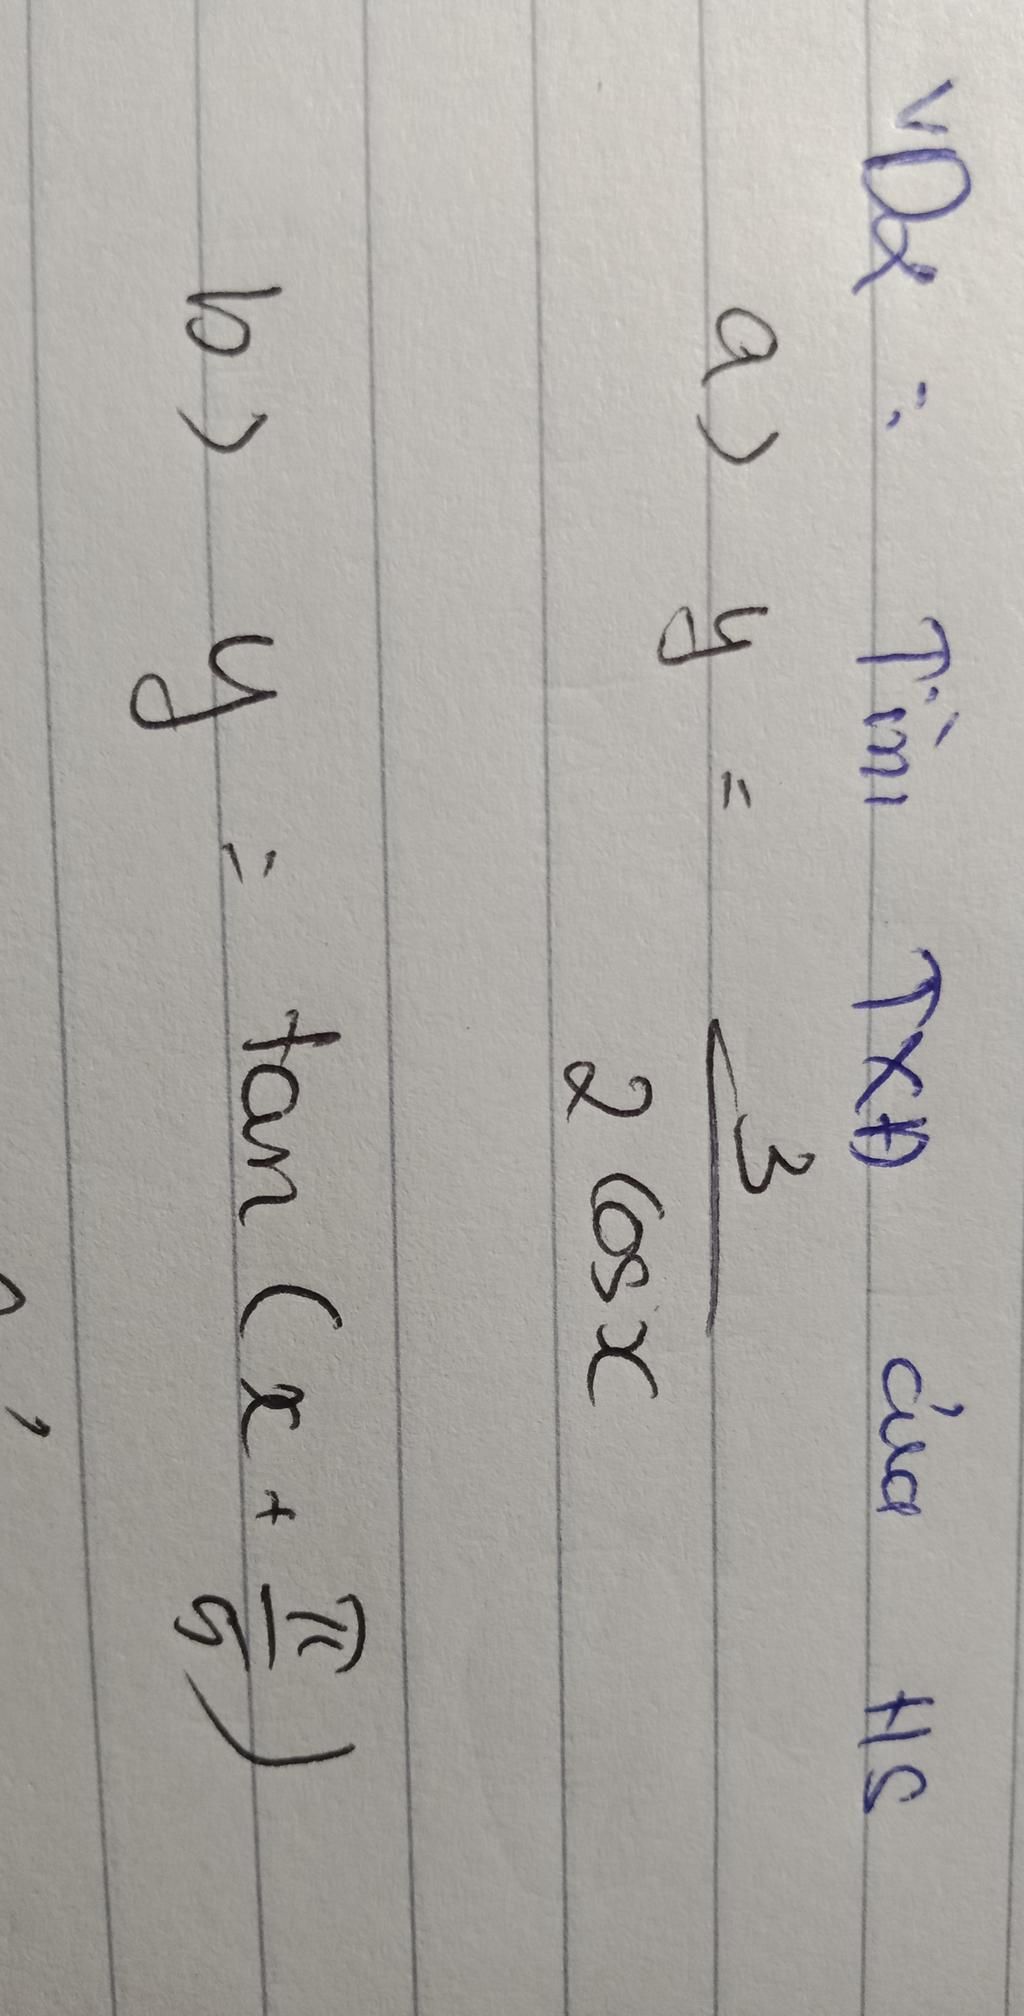 VD2 : Tìm TXĐ của HS
a) y = 3 / 2 cos x
b) y = tan (x + π/5)